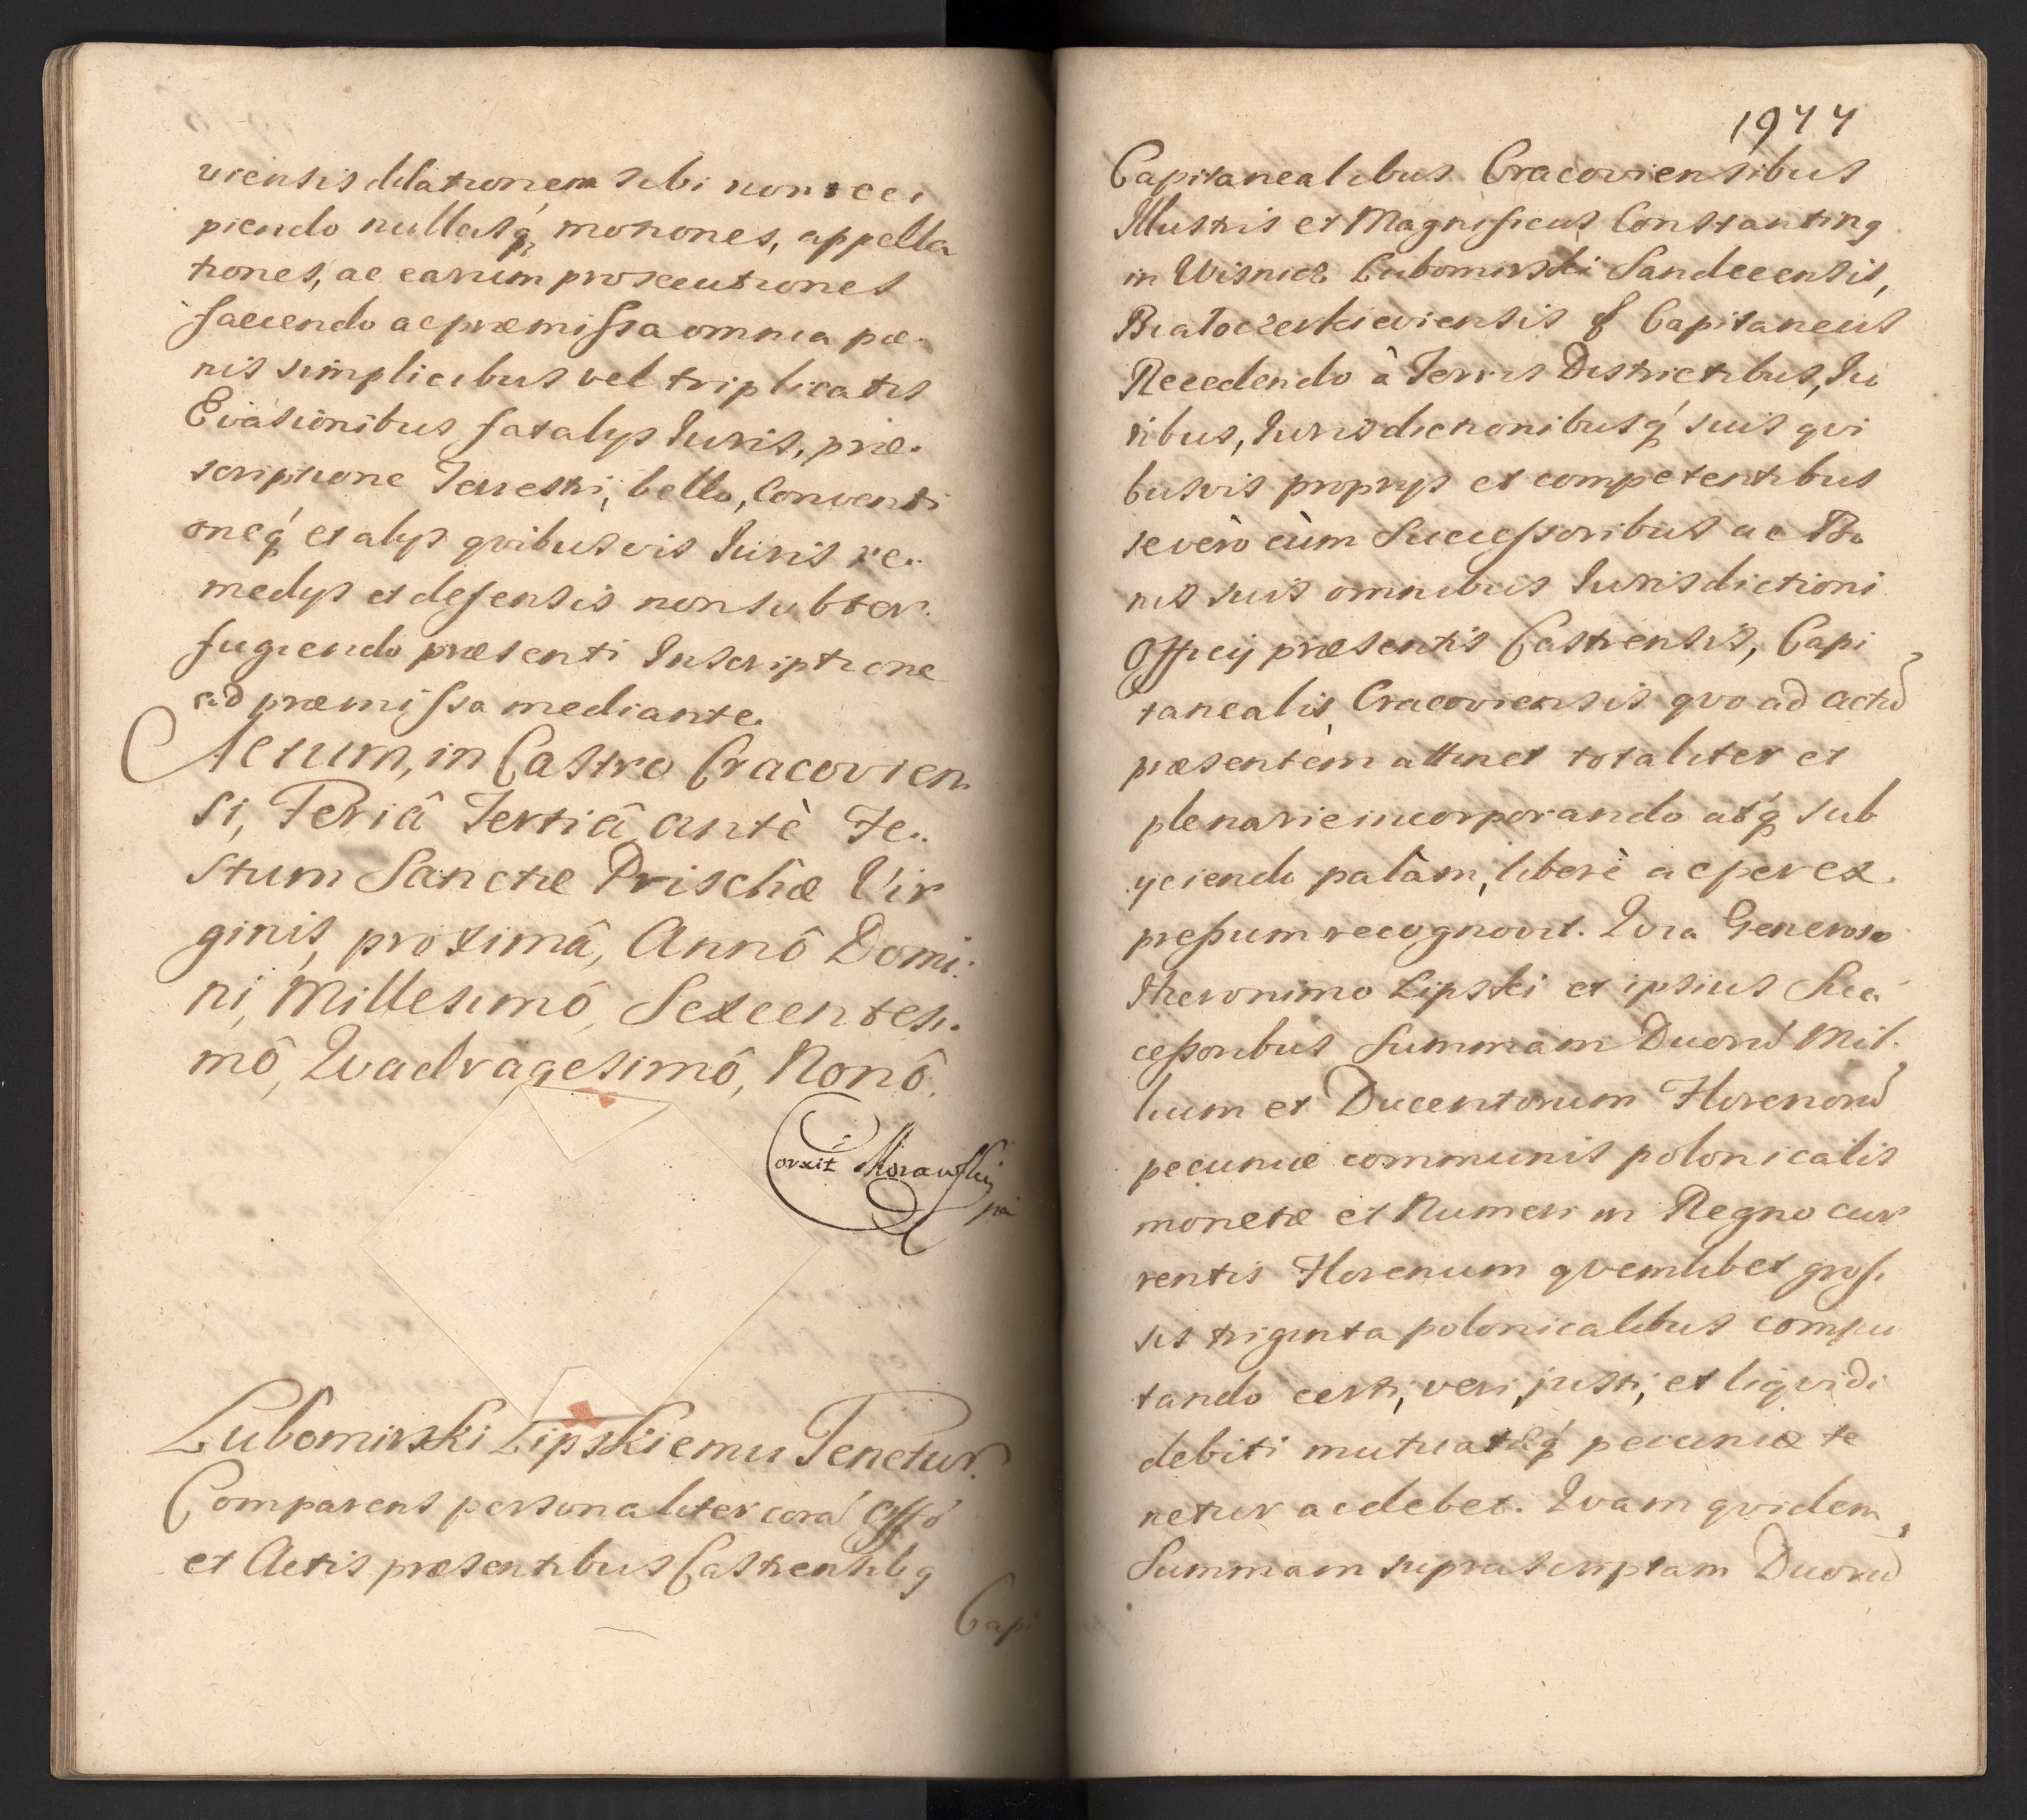 viensis dilationem sibi non reci
piendo nullasq́ motiones, appella
tiones, ac earum prosecutiones
faciendo ac præmissa omnia pæ.
nis simplicibus vel triplicatis
Evasionibus fatalys Iuris, præ.
scriptione Terrestri, bello, Conventi
oneq́ et alys qvibusvis Iuris re..
medys et defensis non subter.
fugiendo præsenti Inscriptione
ad præmissa mediante.
Actum, in Castro Cracovien
si, Feriâ Tertiâ antè Fe..
stum Sanctæ Prischæ Vir
ginis, proximâ, Annô Domi:
ni, Millesimô, Sexcentesi.
mô, Qvadragesimô, Nonô.
Corxit Morawski
Lubomirski Lipskiemu Tenetur.
Comparens personaliter corá Offó
et Actis præsentibus Castrensibq
Capi
1977
Capitanealibus Cracoviensibus
Illustris et Magnificus Constantinq
in Wisnicz Lubomirski Sandecensis,
Białocerkieviensis & Capitaneus
Recedendo à Terris Districtibus, Iu
ribus, Iurisdictionibusq́ suis qvi
busvis proprys et competentibus
se verò cùm Successoribus ac Bo
nis suis omnibus Iurisdictioni
Officij præsentis Castrensis, Capi
tanealis Cracoviensis qvo ad actū
præsentem attinet totaliter et
plenarie incorporando atq́ sub
yciendo palàm, liberè ac per ex.
pressum recognovit. Qvia Generoso
Hieronimo Lipski et ipsius Suc
cessoribus Summam Duorū Mil.
lium et Ducentorum Florenorū
pecuniæ communis polonicalis
monetæ et Numeri in Regno cur
rentis Florenum qvemlibet gros.
sis triginta polonicalibus compu
tando certi, veri, justi, et liqvidi
debiti mutuatæq́ pecuniæ te
netur ac debet. Qvam qvidem
Summam suprascriptam Duorū